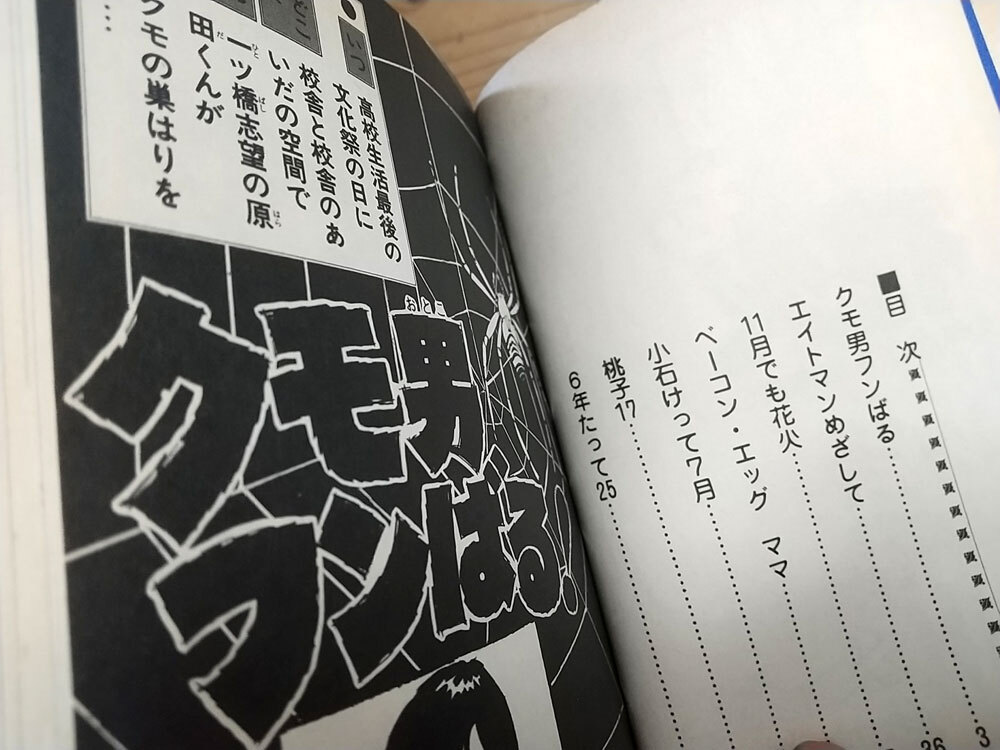 ■目次
クモ男フンばる……3
エイトマンめざして……26
11月でも花火……
ベーコン・エッグ ママ……
小石けって7月……
桃子17……
6年たって25……
●いつ
高校生活最後の
文化祭の日に
どこ
校舎と校舎のあ
いだの空間で
一ツ橋志望の原
田くんが
クモの巣はりを
……
クモ男
フンばる!